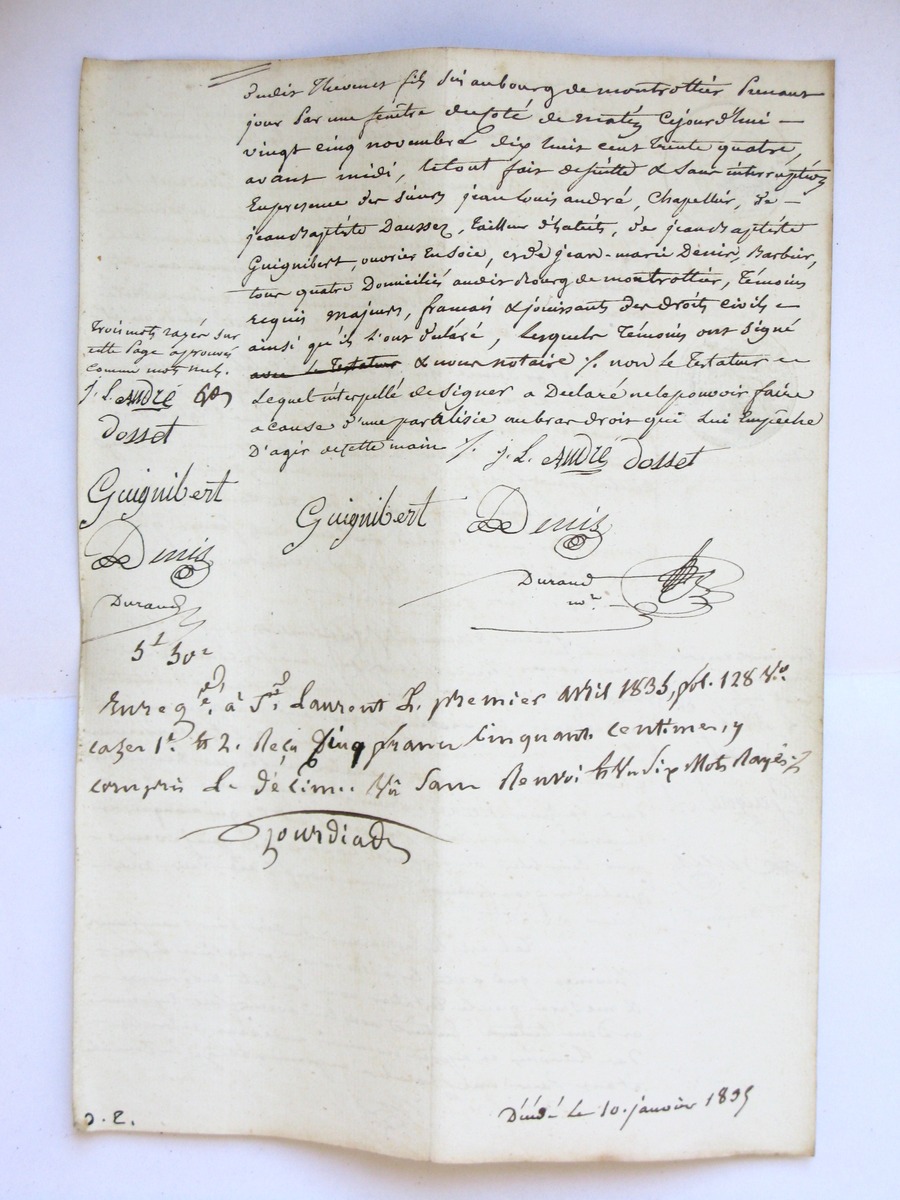 dudit Thevenet fils sis au bourg de montrottier Prenant
jour Par une fenêtre du Coté de matin Cejourd'hui —
vingt cinq novembre dix huit cent trente quatre,
avant midi, le tout fait de suitte & Sans interruption
En presence des Sieurs jean Louis andré, Chapellier, de —
jean Baptiste Daussez, tailleur d'habits, de jean Baptiste
Guignibert, ouvrier En Soie, et de jean-marie Denis, Barbier,
tous quatre Domiciliés audit Bourg de montrottier, Témoins
requis majeurs, francais & jouissants des droits civils
ainsi qu'ils l'ont déclaré, lesquels Témoins ont signé
avec le Testateur & nous notaire /. non le Testateur
Lequel interpellé de signer a Declaré ne le pouvoir faire
a cause d'une paralisie au bras droit qui Lui Empêche
D'agir de cette main /. j. L. André Dosset
Trois mots rayés sur
cette Page aprouvés
comme mots nuls.
j. L. André
Dosset
Guignibert
Denis
Durand
Guignibert Denis
Durand
nore
5f 50c
Enregé. à St. Laurent Le premier avril 1835, fol. 128 Vo.
cazes 1e. & 2. Reçu Cinq francs Cinquante centimes, y
compris Le décime. Sans Renvoi Six Mots Rayés
Décédé Le 10. janvier 1835